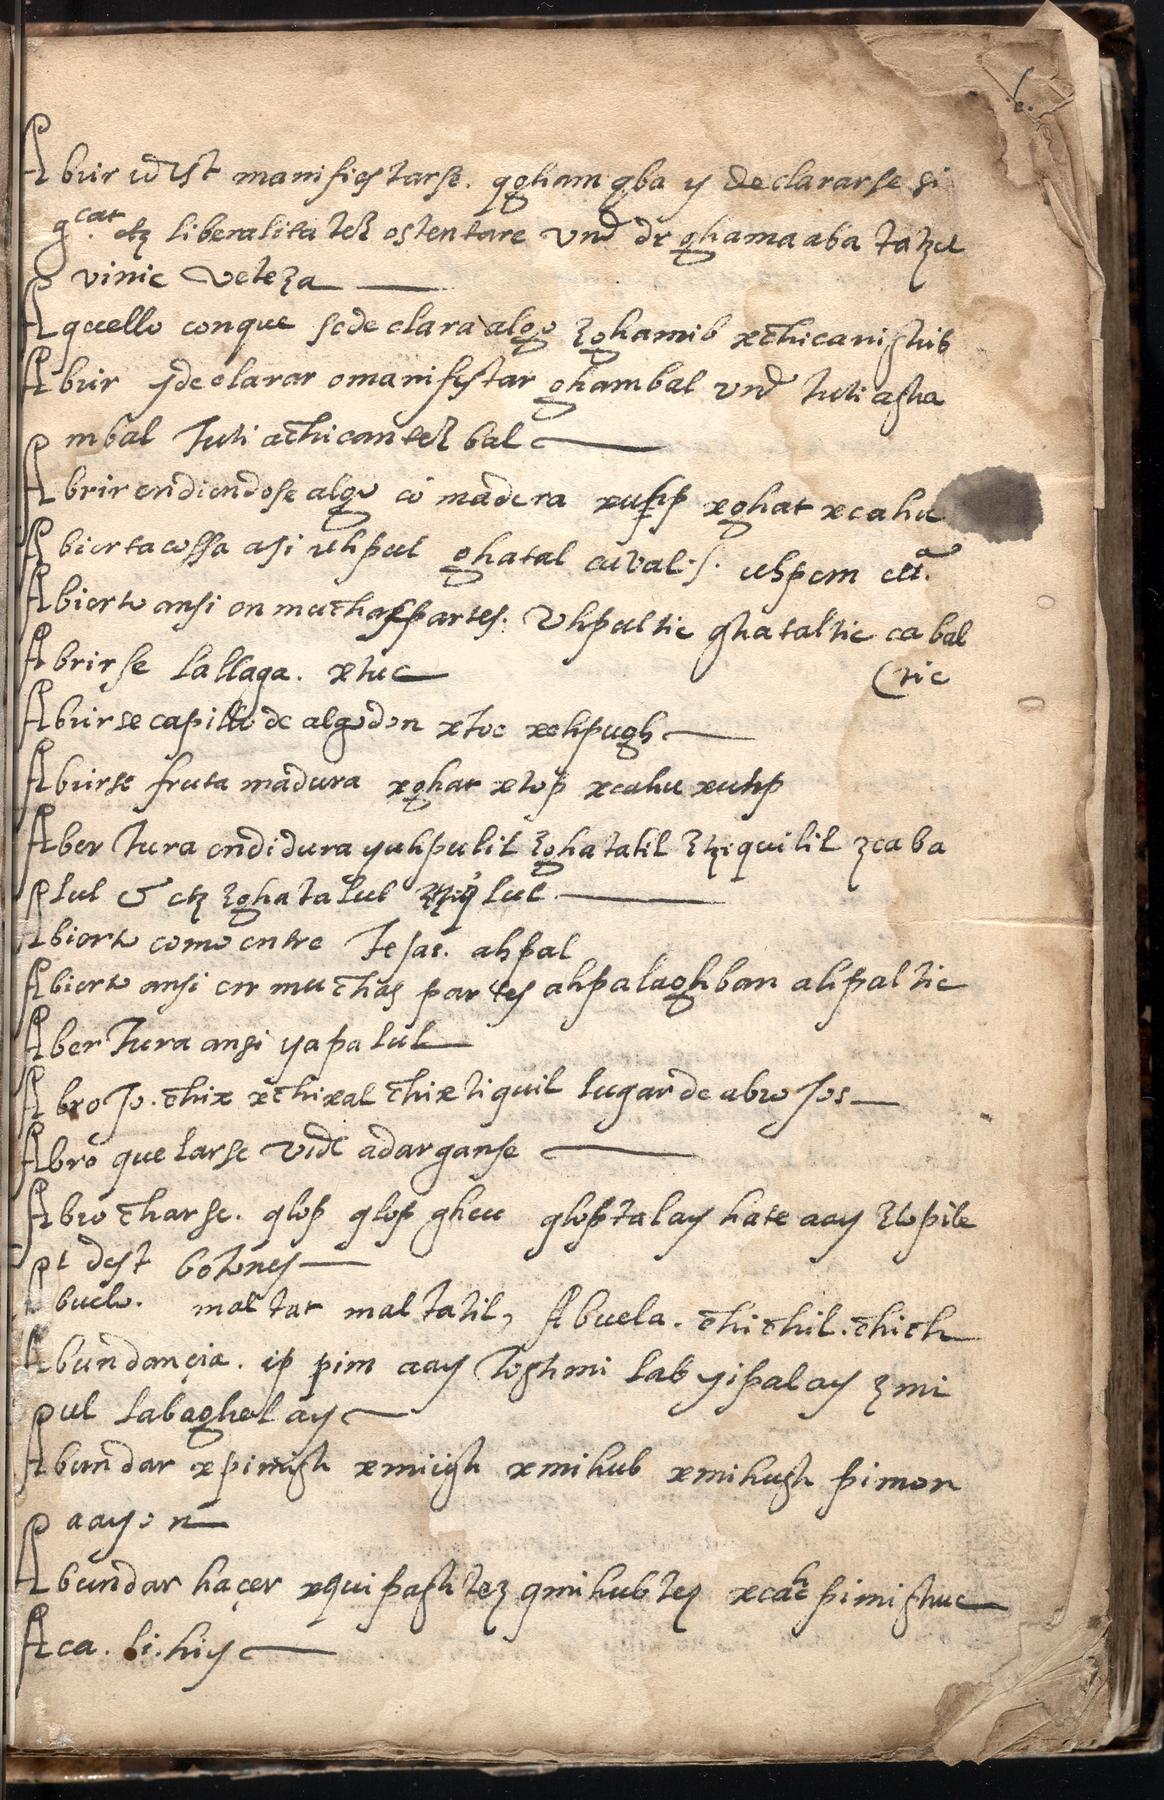 .6.
Abrir id est manifiestarse. qghamgba y declararse si
g cat etz liberalitatez ostentare vnd dr ghamaaba tatzel
vinic veteza
Aquello conque sedeclara algo zghamib xchicanishib
Abrir ÿdeclarar omanifestar ghambal vnd huti asha
mbal Tuti achicantez bal
Abrir endiendose algo cō madera xuhp xghat xcahu
Abierta cossa asi uhpul ghatal cabal .s. uhpem etā.
Abierto ansi en muchas partes. Vhpultic ghataltic cabal
(tic
Abrirse la llaga. xtuc
Abrirse capillo de algodon xtoc xehpugh
Abrirse fruta madura xghat xtop xcahu xuhp
Abertura endidura yuhpulil zghatalil ztziquilil zcaba
lul & etz zghatalul lul
Abierto como entre Tejas. ahpal
Abierto ansi en muchas partes ahpalaghban ahpaltic
Abertura ansi yapalul
Abrojo. chix xchixal chixtiquil lugar de abrojos
Abrōquelarse vide adarganse
Abrocharse. qlop qlop gheu qloptalay hate aay zlopile
l dest botones
Abuelo. maltat maltatil, Abuela. chichil. chich
Abundançia. ip pim aay toghmi lab yipalay zmi
ul labaghel ay
Abundar xpimigh xmiigh xmihub xmihugh pimon
aay. n
Abundar haçer xquipaghtez qmihubtez xcah pimishuc
Aca. li. hiy